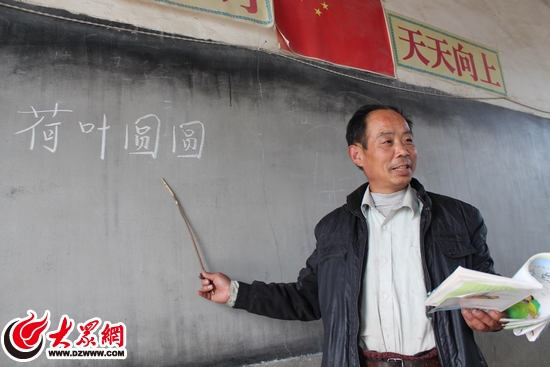 天天向上
荷叶圆圆
大眾網
WWW.DZWWW.COM